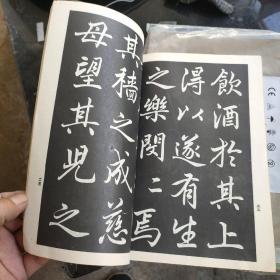 飲酒於其上
得以遂有生
之樂閔〻焉
其穡之成慈
母望其兒之